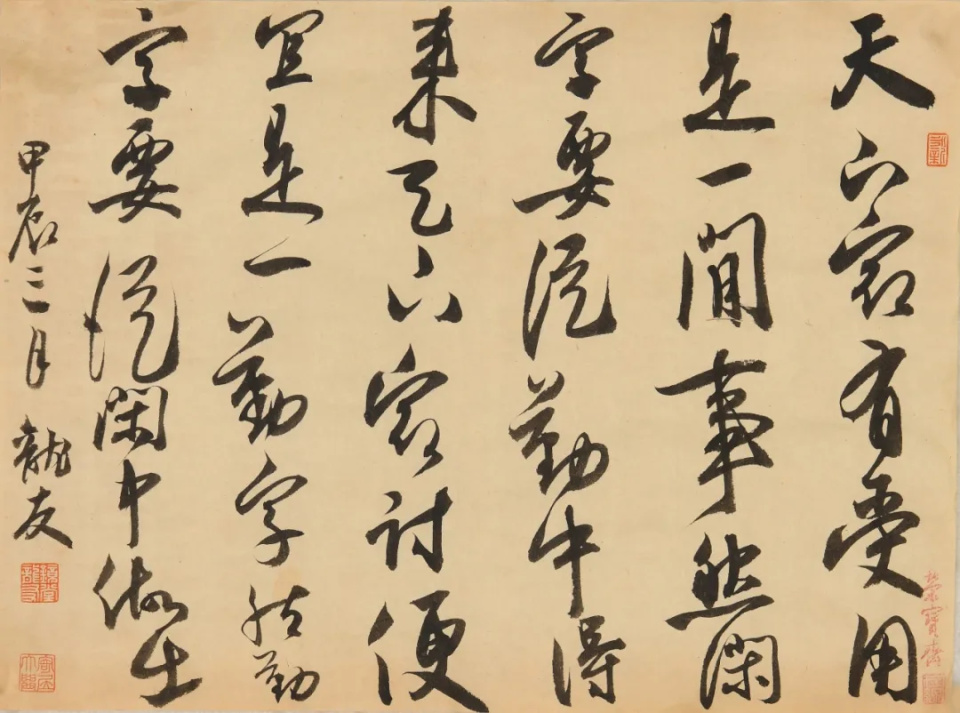 天下最有受用
是一閒事然閑
字要從勤中得
来天下最討便
宜是一勤字然勤
字要從閑中做出
甲辰三月 龍友
榮寶齋